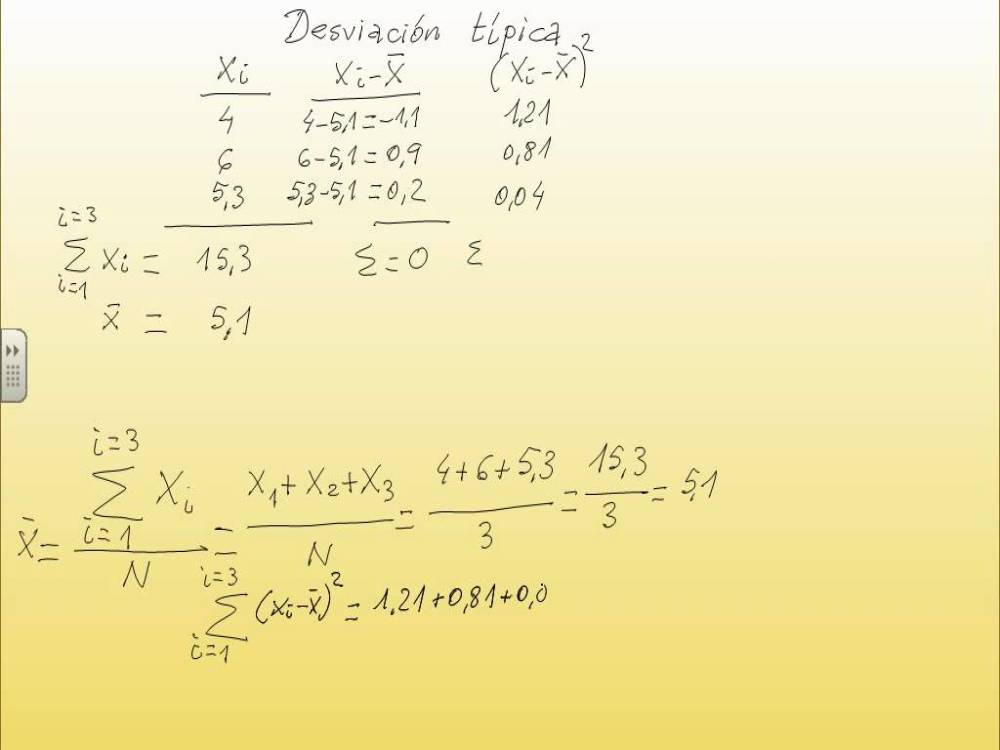 Desviación típica
Xi Xi-X̄ (Xi-X̄)²
4 4-5,1=-1,1 1,21
6 6-5,1=0,9 0,81
5,3 5,3-5,1=0,2 0,04
i=3
Σ Xi = 15,3 Σ=0 Σ
i=1
x̄ = 5,1
i=3
Σ Xi X₁+X₂+X₃ 4+6+5,3 15,3
i=1
X̄= = = = = 5,1
N N 3 3
i=3
Σ (xi-x̄)² = 1,21+0,81+0,0
i=1